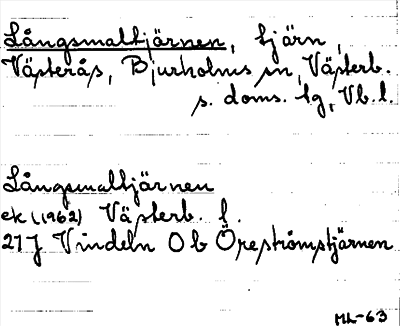 Långsmaltjärnen, tjärn,
Västerås, Bjurholms sn, Västerb.
s. doms. lg, Vb. l.
Långsmaltjärnen
ek (1962) Västerb. l.
21J Vindeln 0 b Öreströmstjärnen
ML-63